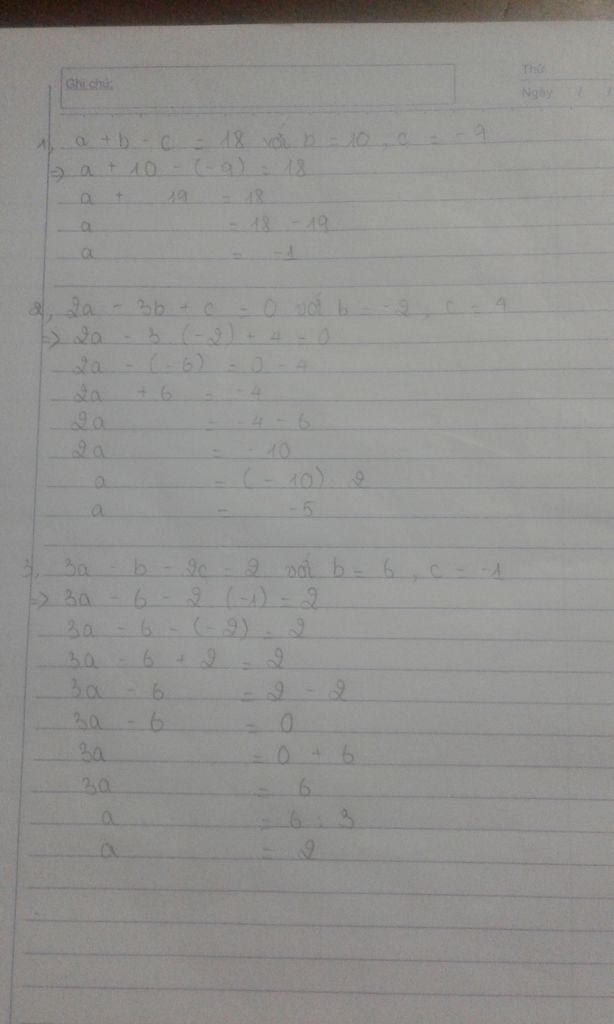 Thứ:
Ghi chú:
Ngày: / /
1, a + b - c = 18 với b = 10, c = -9
=> a + 10 - (-9) = 18
a + 19 = 18
a = 18 - 19
a = -1
2, 2a - 3b + c = 0 với b = -2, c = 4
=> 2a - 3.(-2) + 4 = 0
2a - (-6) = 0 - 4
2a + 6 = -4
2a = -4 - 6
2a = -10
a = (-10) : 2
a = -5
3, 3a - b - 2c = 2 với b = 6, c = -1
=> 3a - 6 - 2.(-1) = 2
3a - 6 - (-2) = 2
3a - 6 + 2 = 2
3a - 6 = 2 - 2
3a - 6 = 0
3a = 0 + 6
3a = 6
a = 6 : 3
a = 2